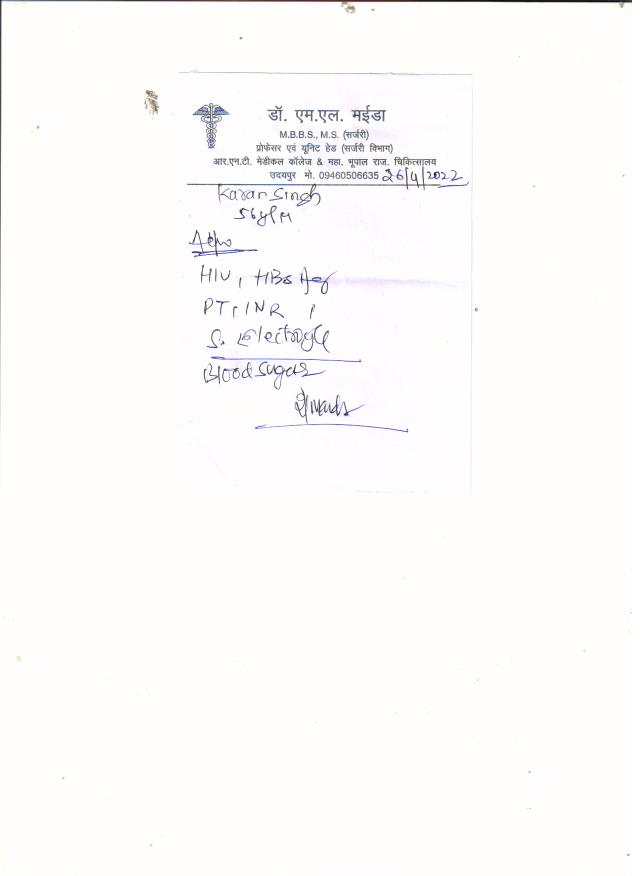 डॉ. एम.एल. मईडा
M.B.B.S., M.S. (सर्जरी)
प्रोफेसर एवं यूनिट हेड (सर्जरी विभाग)
आर.एन.टी. मेडीकल कॉलेज & महा. भूपाल राज. चिकित्सालय
उदयपुर मो. 09460506635 26/4/2022
Karan Singh
56y/M
HIV, HBsAg
PT, INR
S. Electroyle
Blood Sugar